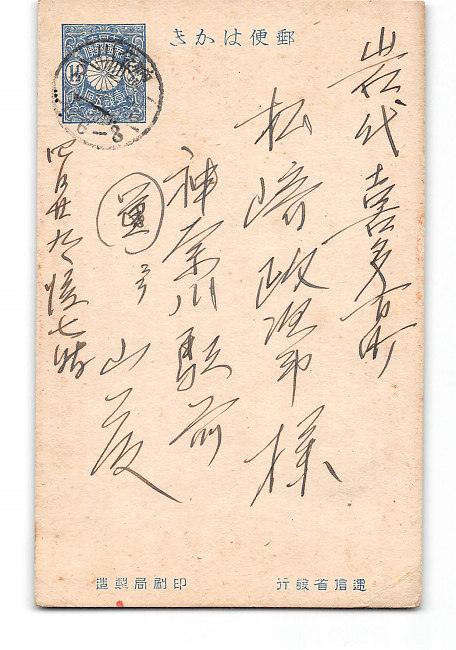 郵便はかき
岩代喜多方町
松崎政次第様
神奈川駅前
運
山二
四月廿九日後七時
逓信省發行
印刷局製造